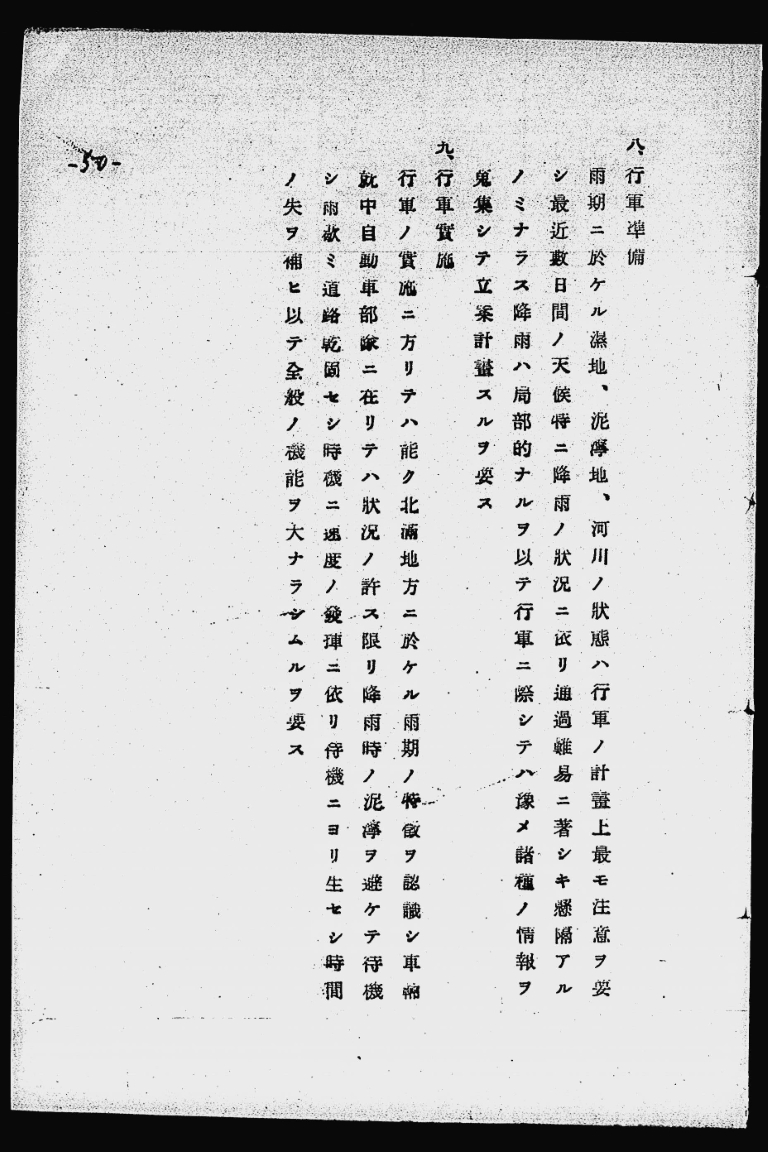 八、行軍準備
雨期ニ於ケル濕地、泥濘地、河川ノ狀態ハ行軍ノ計畫上最モ注意ヲ要
シ最近數日間ノ天候特ニ降雨ノ狀況ニ依リ通過難易ニ著シキ懸隔アル
ノミナラス降雨ハ局部的ナルヲ以テ行軍ニ際シテハ豫メ諸種ノ情報ヲ
蒐集シテ立案計畫スルヲ要ス
九、行軍實施
行軍ノ實施ニ方リテハ能ク北滿地方ニ於ケル雨期ノ特徵ヲ認識シ車輛
就中自動車部隊ニ在リテハ狀況ノ許ス限リ降雨時ノ泥濘ヲ避ケテ待機
シ雨歇ミ道路乾固セシ時機ニ速度ノ發揮ニ依リ待機ニヨリ生セシ時間
ノ失ヲ補ヒ以テ全般ノ機能ヲ大ナラシムルヲ要ス
-50-